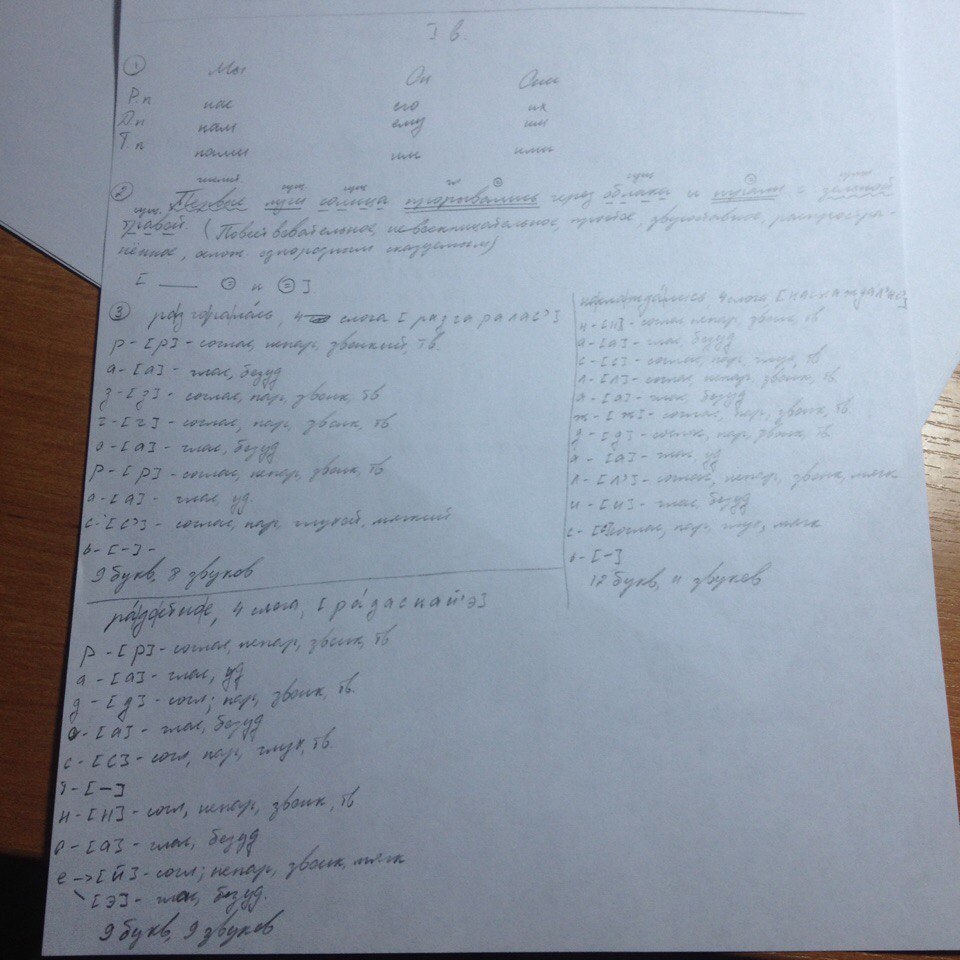 I в.
① Мы Он Они
Р.п нас его их
Д.п нам ему им
Т.п нами им ими
числит сущ. сущ. гл сущ сущ прил
② Первые лучи солнца прорывались через облака и играли с зеленой
сущ. травой. (Повествовательное, невосклицательное, простое, двусоставное, распростра-
нённое, ослож. однородными сказуемыми)
[ ___ ⊜ и ⊜ ]
③ разгоралась, 4 слога [разгаралас']
р-[р]-соглас, непар, звонкий, тв.
а-[а]- глас, безуд
з-[з]-соглас, пар, звонк, тв
г-[г]-соглас, пар, звонк, тв.
о-[а]-глас, безуд
р-[р]-соглас, непар, звонк, тв
а-[а]- глас, уд.
с-[с']-соглас, пар, глухой, мягкий
ь-[-]-
9 букв, 8 звуков
наслаждались 4 слога [наслаждал'ис]
н-[н]-соглас, непар, звонк, тв
а-[а]-глас, безуд
с-[с]-соглас, пар, глух, тв
л-[л]-соглас, непар, звонк, тв.
а-[а]-глас, безуд
ж-[ж]-соглас, пар, звонк, тв.
д-[д]-соглас, пар, звонк, тв
а-[а]-глас, уд
л-[л']-соглас, непар, звонк, мягк
и-[и]-глас, безуд
с-[с]соглас, пар, глух, мягк
ь-[-]
12 букв, 11 звуков
радостное, 4 слога, [радаснай'э]
р-[р]-соглас, непар, звонк, тв
а-[а]-глас, уд
д-[д]-согл; пар, звонк, тв.
о-[а]-глас, безуд
с-[с]-согл, пар, глух, тв.
т-[-]
н-[н]-согл, непар, звонк, тв
о-[а]-глас, безуд
е->[й]-согл; непар, звонк, мягк
\[э]-глас, безуд.
9 букв, 9 звуков